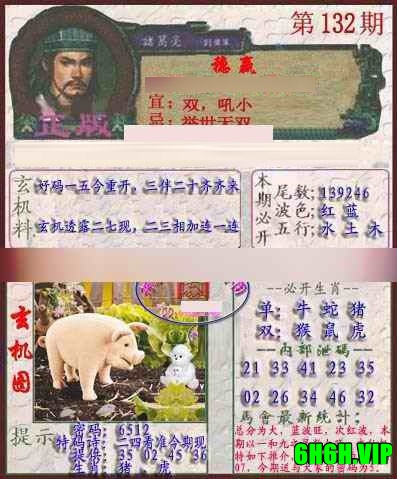 第132期
諸葛亮
穩贏
宜：双，吼小
忌：举世无双
正版
玄机料
好码一五合重开，三伴二十齐齐来
玄机透露二七现，二三相加连一连
本期必开
尾数：139246
波色：红 蓝
五行：水 土 木
玄机图
必开生肖
单：牛 蛇 猪
双：猴 鼠 虎
内部泄码
21 33 41 23 35
02 26 34 46 32
馬會最新統計：
提示
密码：6512
特码诗：二四看准今期现
提供：35 02 45 36
生肖：猪、虎
总分为大，蓝波旺，次红波，本
07，今期送与大家的密码为5.
6HGH.VIP